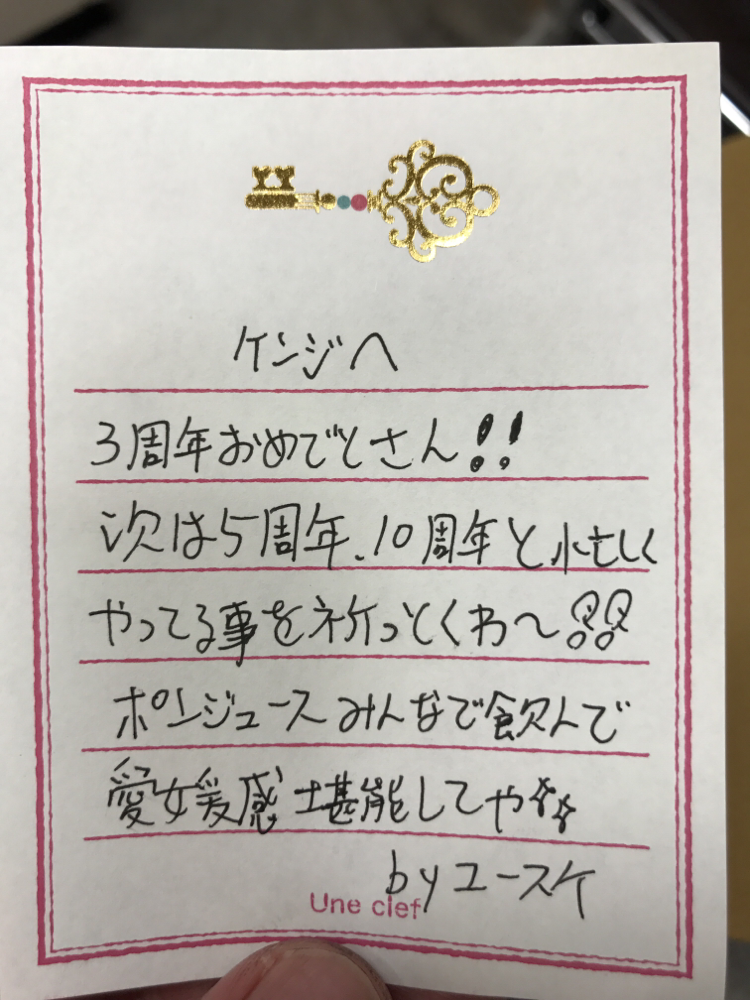 ケンジへ
3周年おめでとさん!!
次は5周年、10周年と忙しく
やってる事を祈っとくわ〜!!
ポンジュースみんなで飲んで
愛媛感堪能してや✨
byユースケ
Une clef